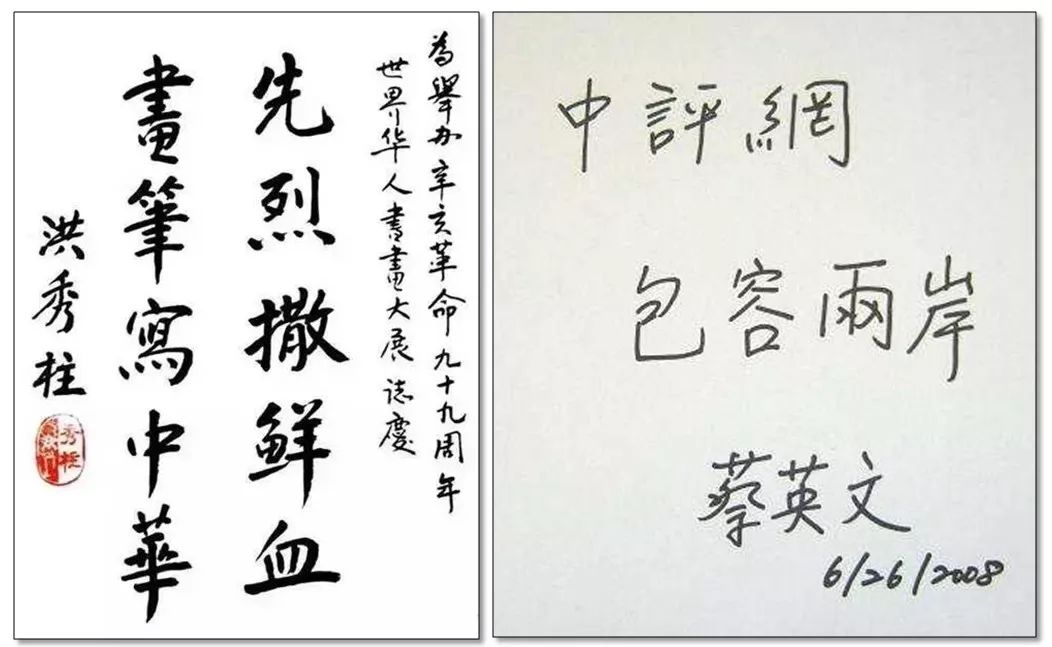 為舉办辛亥革命九十九周年
世界华人書畫大展 誌慶
先烈撒鲜血
畫筆寫中華
洪秀柱
秀柱
中評網
包容兩岸
蔡英文
6/26/2008